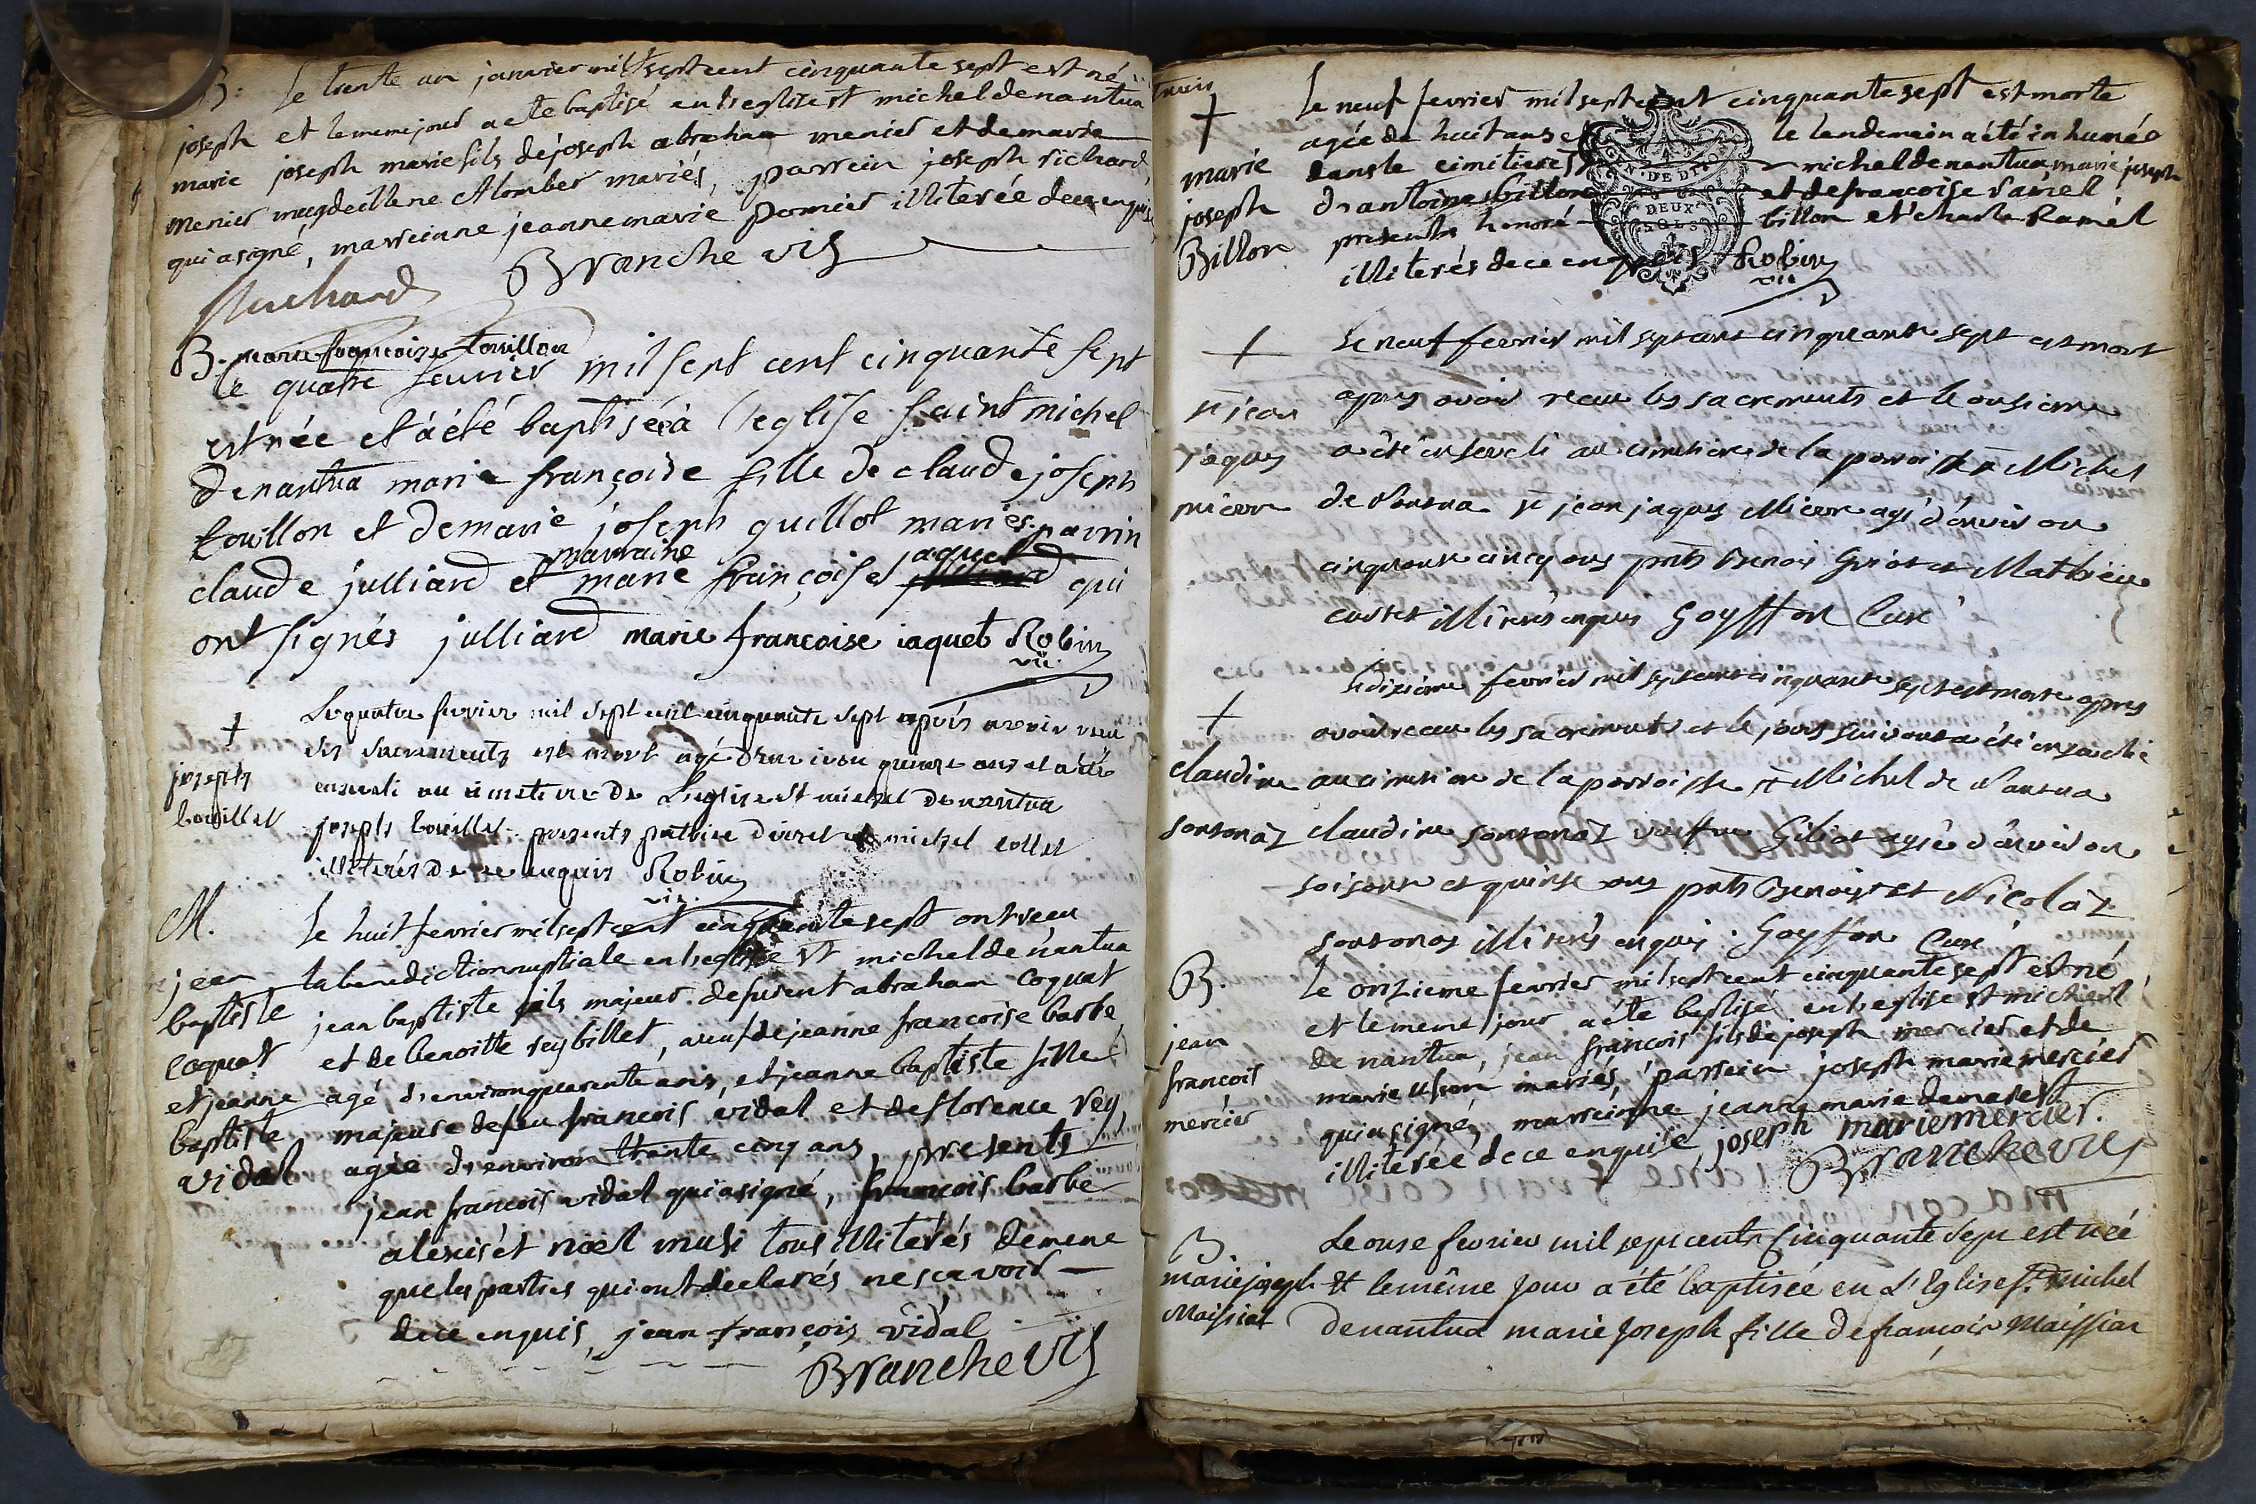 B. Le trente un janvier mil sept cent cinquante sept est né
joseph et le meme jour a ete baptisé en l'eglise st michel de nantua
marie joseph marie fils de joseph abraham menier et de marie
menier magdeillene Alomber mariés, parrein joseph richard
qui a signé, marreinne jeanne marie pomier illiterée de ce enquise
Richard Branche vis
B. marie francoise touillon
le quatre fevrier mil sept cent cinquante sept
est née et à été baptisée à l'eglise saint michel
de nantua marie françoise fille de claude joseph
touillon et de marie joseph guillot mariés. pairin
marraine jaquet
claude julliard et marie françoise qui
ont signés julliard marie françoise iaquet Robin
vic.
+ Le quatre fevrier mil sept cent cinquante sept apres avoir receu
les sacrements est mort agé d'environ ans et a été
joseph enseveli au cimetiere de L'eglise st michel de nantua
bouillet joseph bouillet presents et michel collet
illiterés de ce enquis Robin
vic.
M. Le huit fevrier mil sept cent cinquante sept ont receu
jean la benediction nuptiale en l'eglise st michel de nantua
baptiste jean baptiste fils majeur de furent abraham coquat
coquat et de benoitte reybillet, veuf de jeanne francoise barbe
et jeanne agé d'environ quarente ans, et jeanne baptiste fille
baptiste majeure de feu francois vidal et de florence rey,
vidal agée d'environ trente cinq ans, presents
jean francois vidal qui a signé, francois barbe
alexis et noel musi tous illiterés de meme
que les parties qui ont declarés ne scavoir
de ce enquis, jean françois vidal
Branche vis
+ Le neuf fevrier mil sept cent cinquante sept est morte
agée de huit ans et le lendemain a été inhumée
marie dans le cimitiere michel de nantua marie joseph
joseph d'antoine billon et de francoise ramel
Billon presents honoré billon et charle Ramel
illiterés de ce enquis Robin
vic
GEN. DE DIJON
DEUX
SOLS
+ Le neuf fevrier mil sept cent cinquante sept est mort
sr jean apres avoir receu les sacrements et le onsieme
jaques a été enseveli au cimetiere de la parroisse st Michel
de Nantua sr jean jaques agé d'environ
cinquante cinq ans pnts Benoit et Mathieu
illiterés enquis Goyffon Curé
Le dixieme fevrier mil sept cent cinquante sept est morte apres
+ avoir receu les sacrements et le jour suivant a été ensevelie
claudine au cimetiere de la parroisse st Michel de Nantua
sontonaz claudine sontonaz agée d'environ
soisente et quinse ans pnts Benoist et Nicolaz
sontonas illiterés enquis. Goyffon Curé
B. Le onzieme fevrier mil sept cent cinquante sept est né
et le meme jour a été baptisé en l'eglise st michel
jean de nantua, jean francois fils de joseph mercier et de
francois marie mariés, parrein joseph marie mercier
mercier qui a signé, marreinne jeanne marie
illiterée de ce enquise, joseph marie mercier.
Branche vis
B. Le onse fevrier mil sept cents Cinquante sept est née
marie joseph Et le même jour a été baptisée en L'Eglise st. michel
Maissiat de nantua marie joseph fille de françois Maissiat